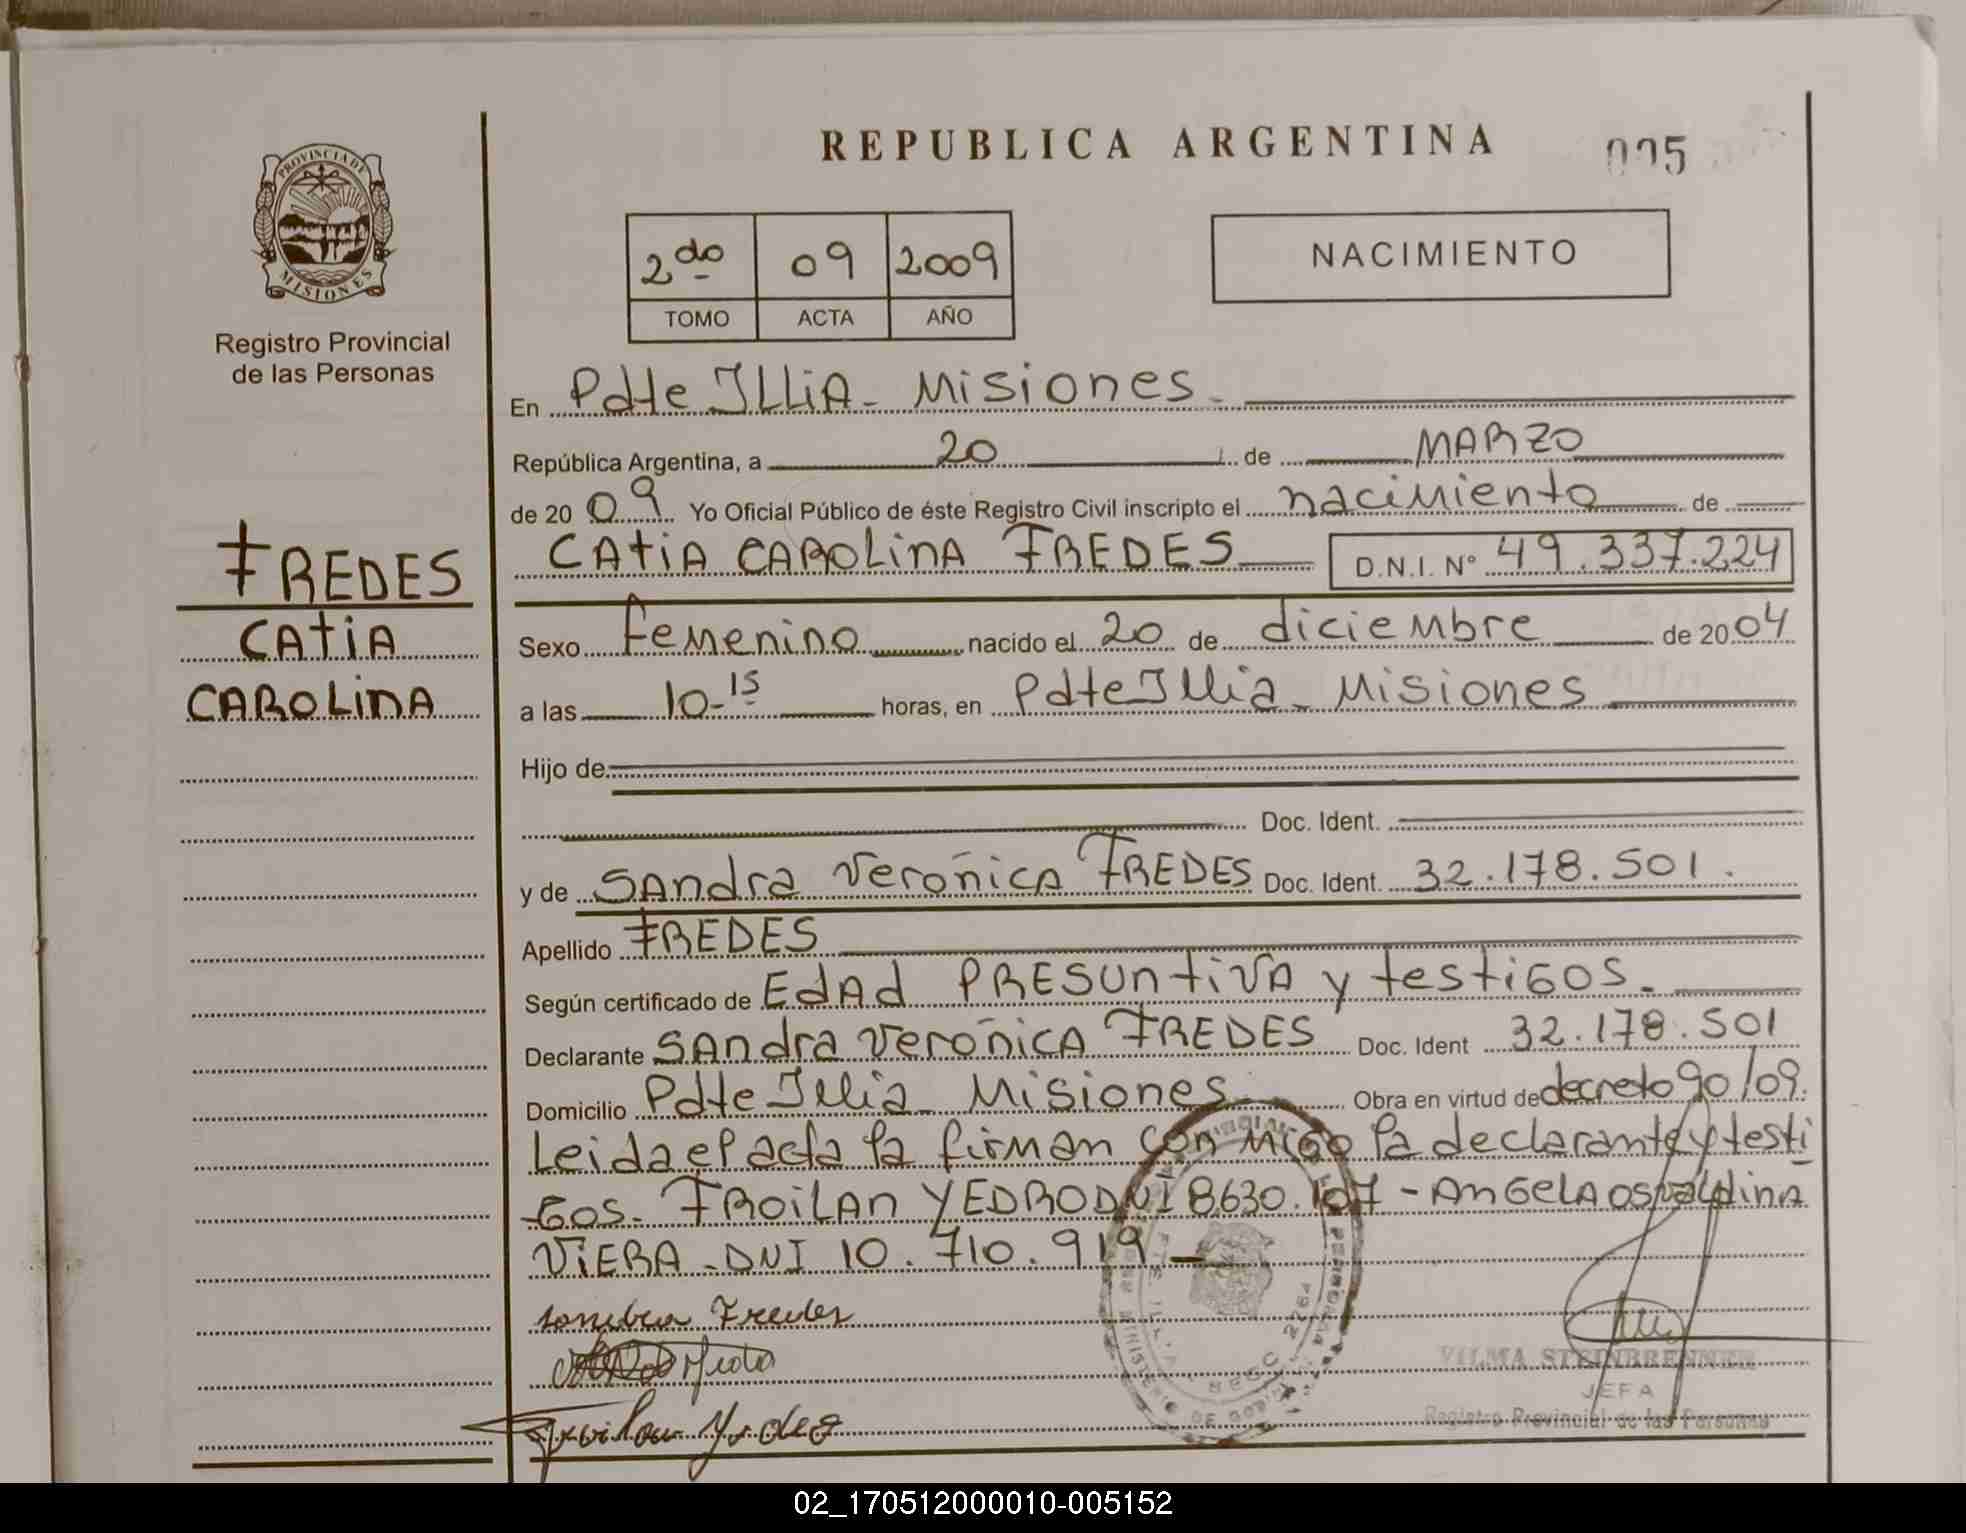 REPUBLICA ARGENTINA
005
PROVINCIA DE
MISIONES
Registro Provincial
de las Personas
2do 09 2009
TOMO ACTA AÑO
NACIMIENTO
En Pdte Illia - Misiones.
República Argentina, a 20 de MARZO
de 2009 Yo Oficial Público de éste Registro Civil inscripto el nacimiento de
CATIA CAROLINA FREDES D.N.I. Nº 49.337.224
FREDES
CATIA
CAROLINA
Sexo Femenino nacido el 20 de diciembre de 2004
a las 10-15 horas, en Pdte Illia - Misiones
Hijo de
Doc. Ident.
y de Sandra Verónica FREDES Doc. Ident. 32.178.501.
Apellido FREDES
Según certificado de Edad PRESUNTIVA y testigos.
Declarante Sandra Verónica FREDES Doc. Ident 32.178.501
Domicilio Pdte Illia - Misiones Obra en virtud de decreto 90/09.
Leida el acta la firman con migo la declarante y testi
gos. FROILAN YEDRO DNI 8630.107 - ANGELA OSVALDINA
VIERA - DNI 10.710.919 -
Sandra Fredes
VILMA STEINBRENNER
JEFA
Registro Provincial de las Personas
02_170512000010-005152